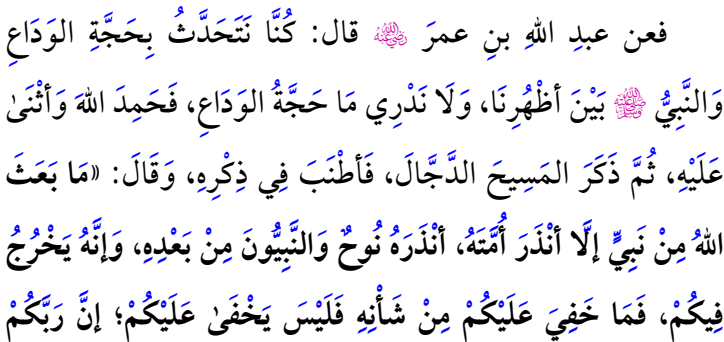 فعن عبدِ اللهِ بنِ عمرَ ﵁ قال: كُنَّا نَتَحَدَّثُ بِحَجَّةِ الوَدَاعِ
وَالنَّبِيُّ ﷺ بَيْنَ أظْهُرِنَا، وَلَا نَدْرِي مَا حَجَّةُ الوَدَاعِ، فَحَمِدَ اللهَ وَأثْنَىٰ
عَلَيْهِ، ثُمَّ ذَكَرَ المَسِيحَ الدَّجَّالَ، فَأطْنَبَ فِي ذِكْرِهِ، وَقَالَ: «مَا بَعَثَ
اللهُ مِنْ نَبِيٍّ إلَّا أنْذَرَ أُمَّتَهُ، أنْذَرَهُ نُوحٌ وَالنَّبِيُّونَ مِنْ بَعْدِهِ، وَإنَّهُ يَخْرُجُ
فِيكُمْ، فَمَا خَفِيَ عَلَيْكُمْ مِنْ شَأْنِهِ فَلَيْسَ يَخْفَىٰ عَلَيْكُمْ؛ إنَّ رَبَّكُمْ